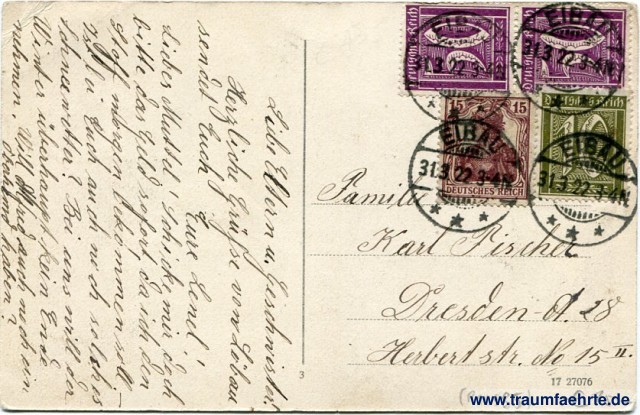 Liebe Eltern u. Geschwister!
Herzliche Grüße von Löbau
sendet Euch
Eure Lenel
Liebe Mutter! schicke mir doch
bitte das Geld sofort da ich den
Stoff morgen bekommen soll.
Habt Ihr Euch auch noch solches
Schneewetter? Bei uns will der
Winter überhaupt kein Ende
nehmen. Will auch noch ein
haben?
Deutsches Reich
Deutsches Reich
15 15
DEUTSCHES REICH
Deutsches Reich
EIBAU
31.3.22.3-4N.
EIBAU
31.3.22.3-4N.
EIBAU
31.3.22.3-4N.
EIBAU
31.3.22.3-4N.
Familie
Karl Pischer
Dresden-A. 28
Herbertstr. No 15 II.
3
17 27076
www.traumfaehrte.de